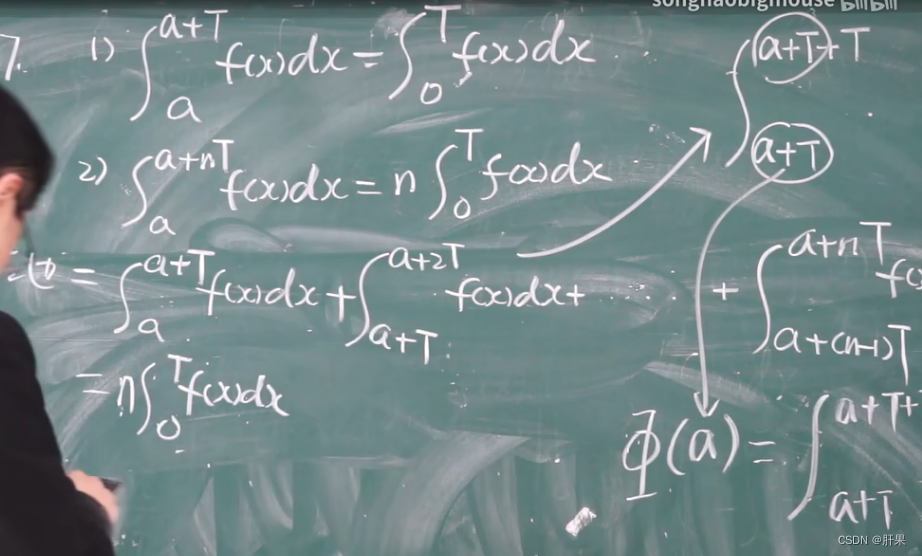 songhaobigmouse bilibili
7. 1) ∫_a^{a+T} f(x)dx = ∫_0^T f(x)dx
∫_{a+T}^{a+T+T}
2) ∫_a^{a+nT} f(x)dx = n ∫_0^T f(x)dx
= ∫_a^{a+T} f(x)dx + ∫_{a+T}^{a+2T} f(x)dx + ...... + ∫_{a+(n-1)T}^{a+nT} f(x
= n∫_0^T f(x)dx
Φ(a) = ∫_{a+T}^{a+T+
CSDN @肝果